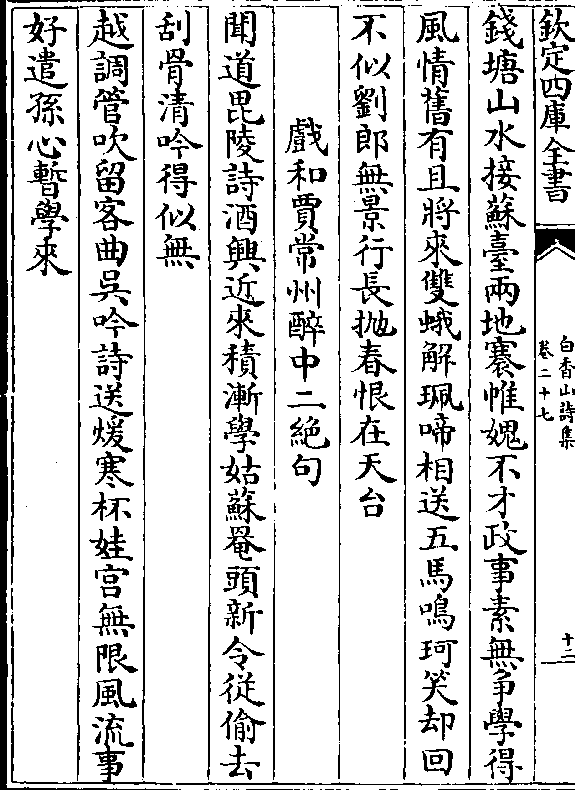 欽定四庫全書
白香山詩集
卷二十七
十二
錢塘山水接蘇臺兩地褰帷媿不才政事素無爭學得
風情舊有且將來雙蛾解珮啼相送五馬鳴珂笑却回
不似劉郎無景行長抛春恨在天台
戲和賈常州醉中二絶句
聞道毘陵詩酒興近來積漸學姑蘇罨頭新令從偷去
刮骨清吟得似無
越調管吹留客曲吳吟詩送煖寒杯娃宮無限風流事
好遣孫心暫學來